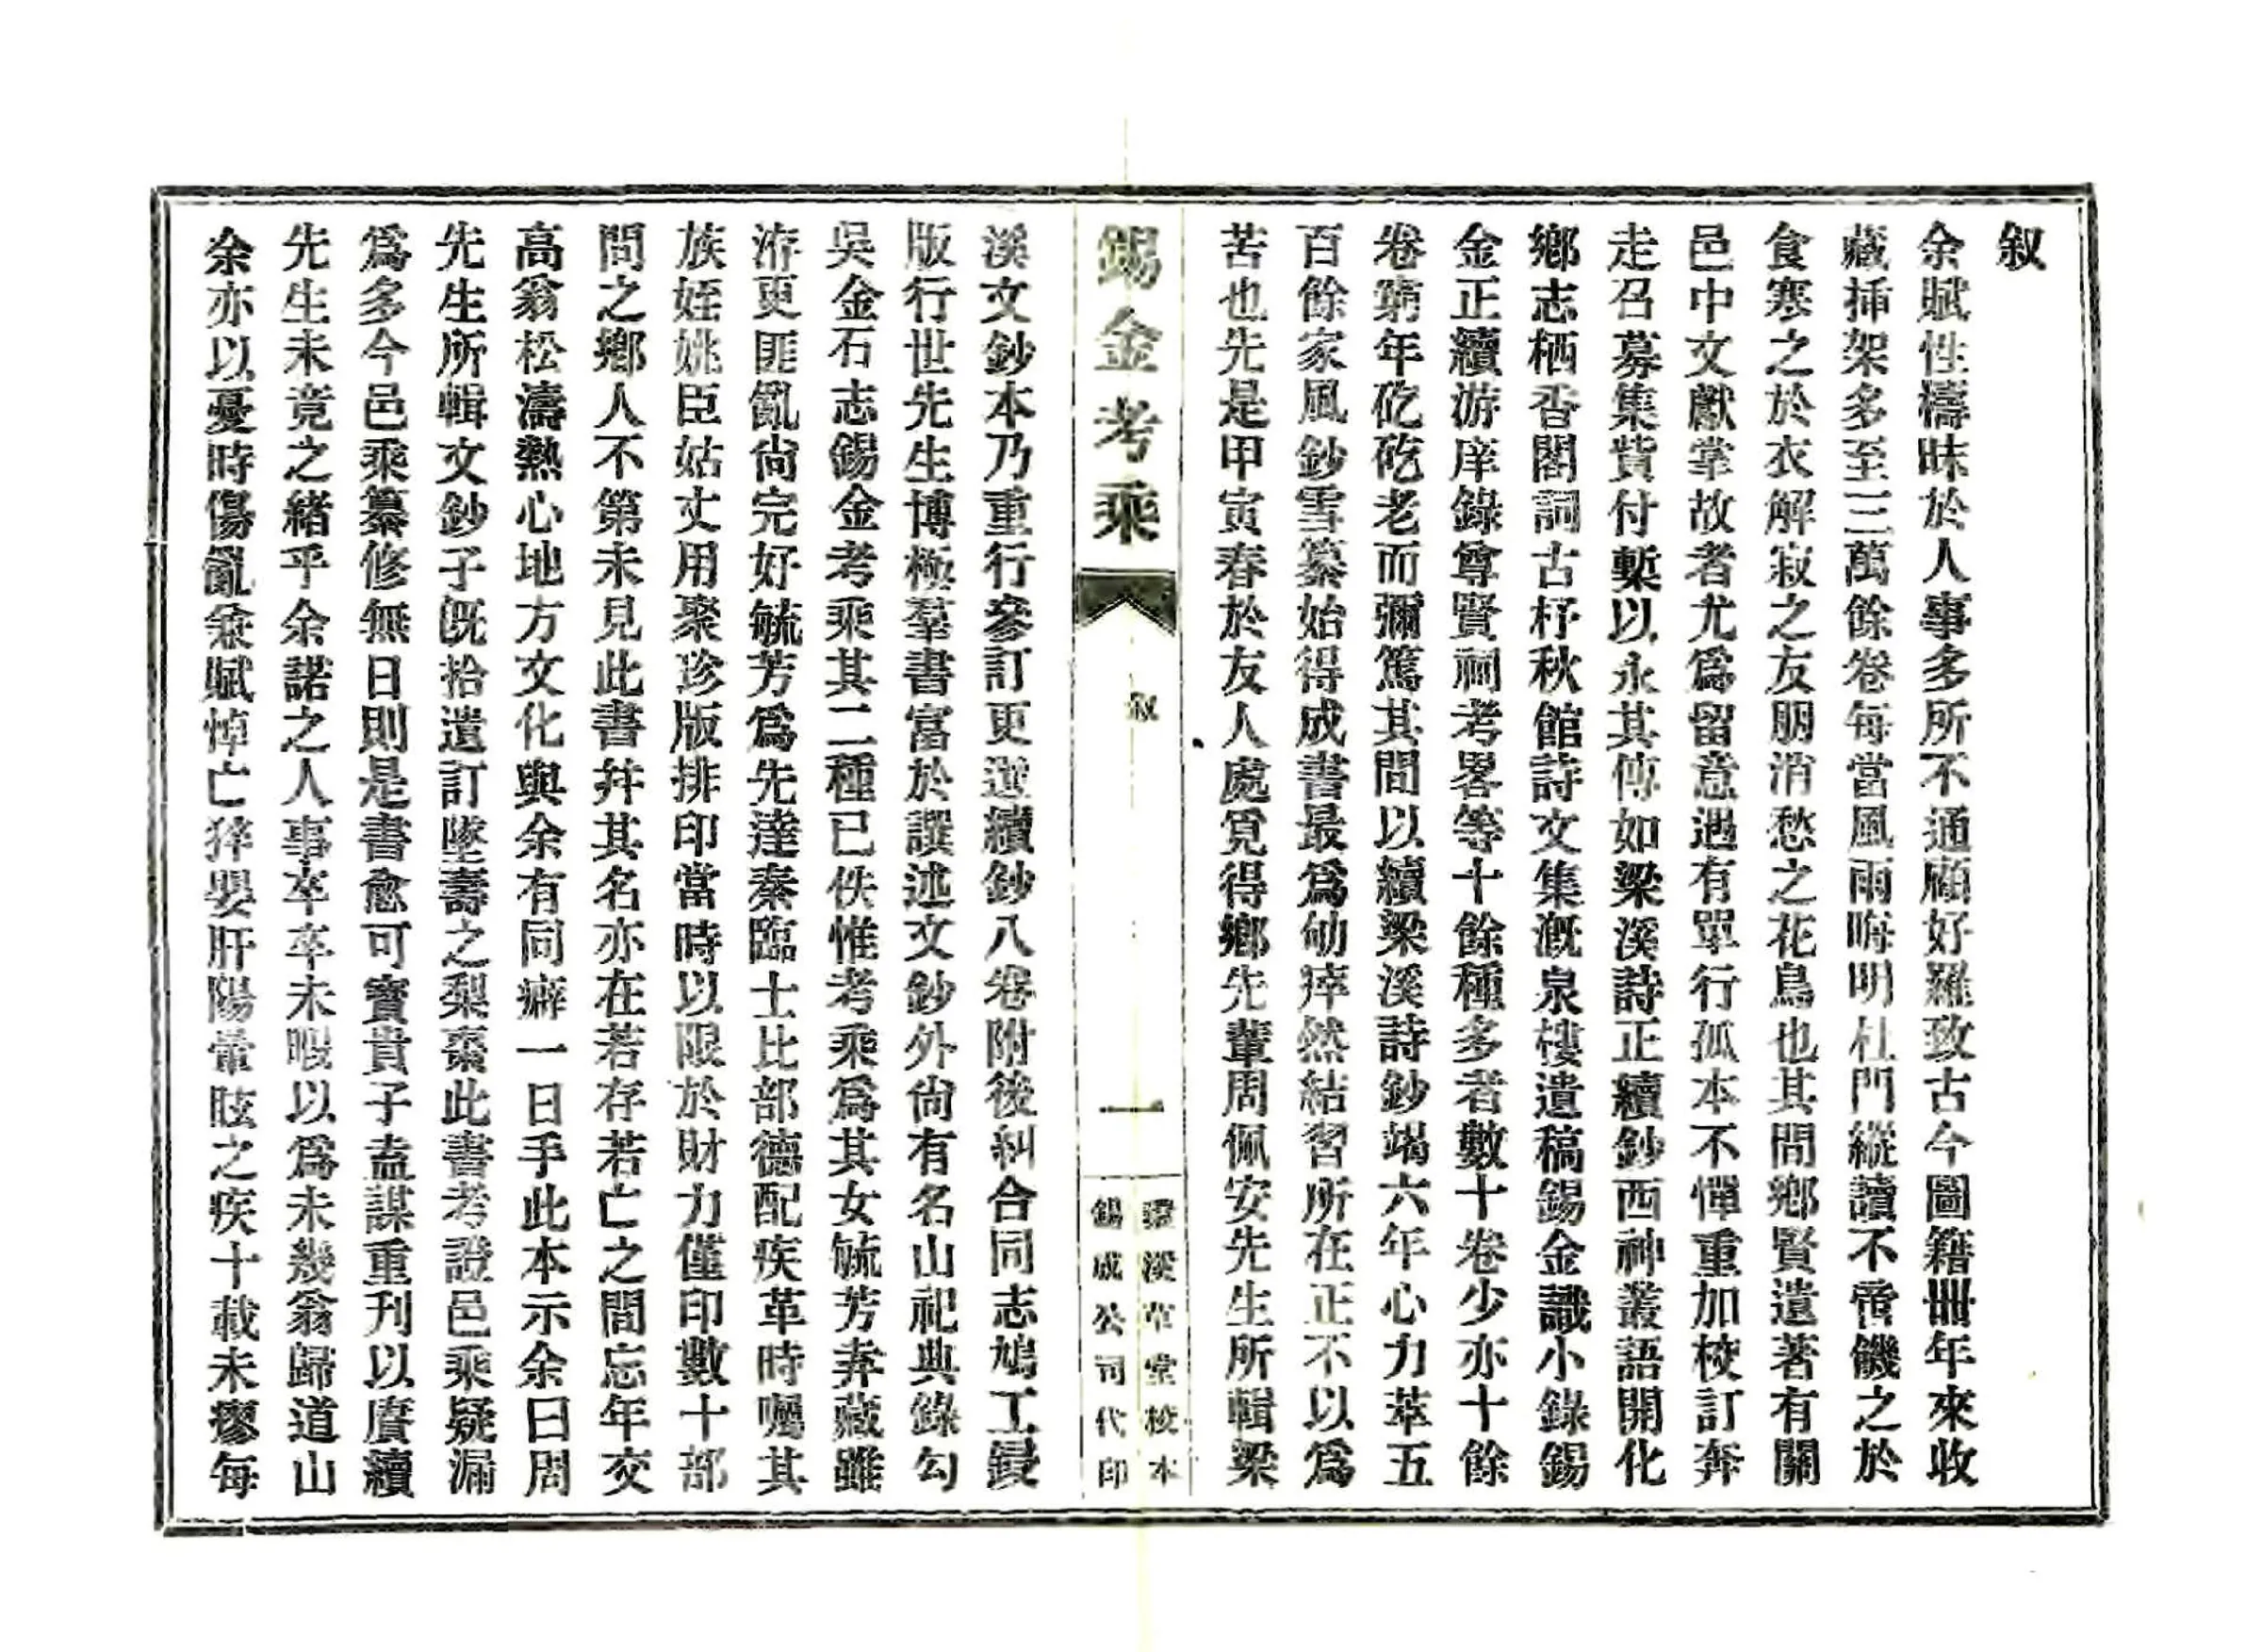 叙
余賦性檮昧於人事多所不通顧好羅致古今圖籍卌年來收
藏插架多至三萬餘卷每當風雨晦明杜門縱讀不啻饑之於
食寒之於衣解寂之友朋消愁之花鳥也其間鄉賢遺著有關
邑中文獻掌故者尤爲留意遇有單行孤本不憚重加校訂奔
走召募集貲付槧以永其傳如梁溪詩正續鈔西神叢語開化
鄉志栖香閣詞古杼秋館詩文集漑泉樓遺稿錫金識小錄錫
金正續游庠錄尊賢祠考畧等十餘種多者數十卷少亦十餘
卷窮年矻矻老而彌篤其間以續梁溪詩鈔竭六年心力萃五
百餘家風鈔雪纂始得成書最爲劬瘁然結習所在正不以爲
苦也先是甲寅春於友人處覓得鄉先輩周佩安先生所輯梁
錫金考乘
叙
一
環溪草堂校本
錫成公司代印
溪文鈔本乃重行參訂更選續鈔八卷附後糾合同志鳩工鋟
版行世先生博極羣書富於譔述文鈔外尙有名山祀典錄勾
吳金石志錫金考乘其二種已佚惟考乘爲其女毓芳弆藏雖
洊更匪亂尙完好毓芳爲先達秦臨士比部德配疾革時囑其
族姪姚臣姑丈用聚珍版排印當時以限於財力僅印數十部
問之鄉人不第未見此書幷其名亦在若存若亡之間忘年交
高翁松濤熱心地方文化與余有同癖一日手此本示余曰周
先生所輯文鈔子旣拾遺訂墜壽之梨棗此書考證邑乘疑漏
爲多今邑乘纂修無日則是書愈可寶貴子盍謀重刊以賡續
先生未竟之緒乎余諾之人事卒卒未暇以爲未幾翁歸道山
余亦以憂時傷亂兼賦悼亡猝嬰肝陽暈眩之疾十載未瘳每